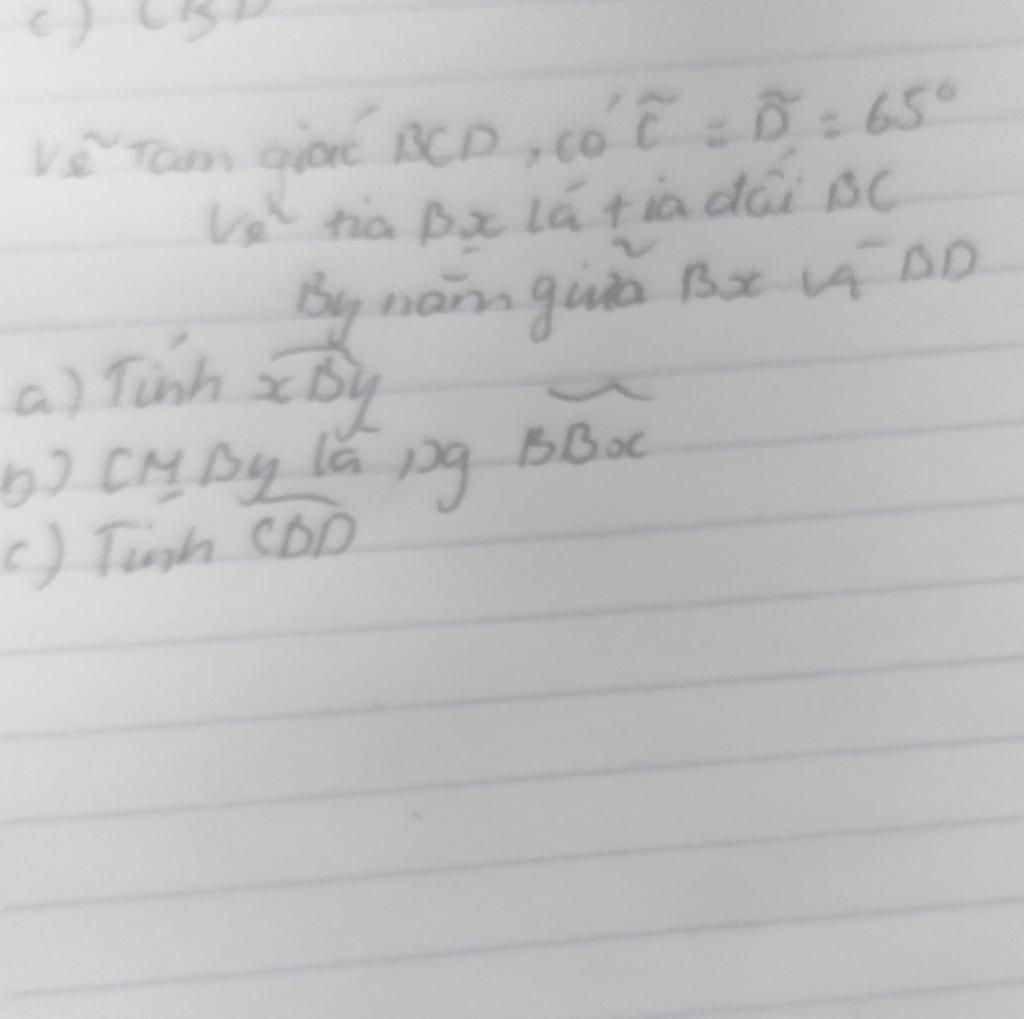 c) CBD
Vẽ Tam giác BCD, có Ĉ = D̂ = 65°
Vẽ tia Bx là tia đối BC
By nằm giữa Bx và BD
a) Tính xBy
b) CM By là pg BBx
c) Tính CBD